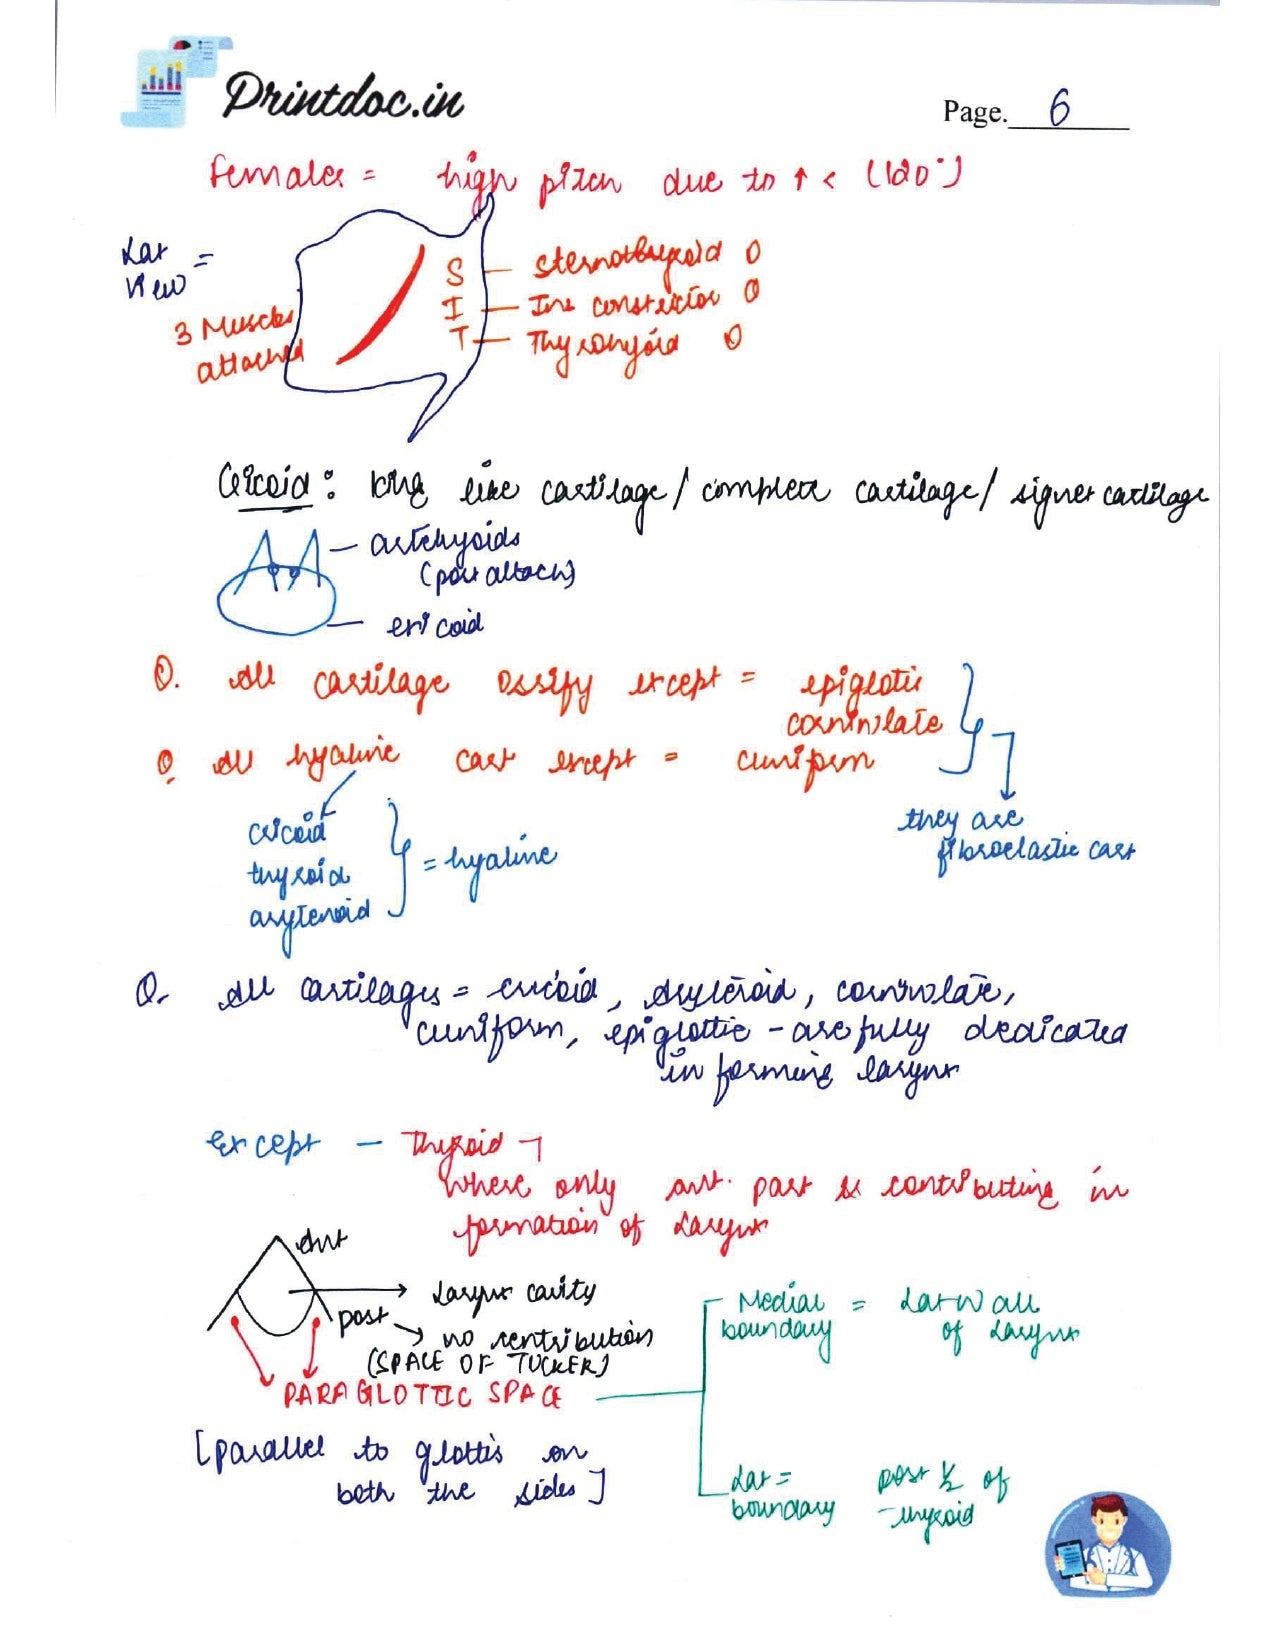 Printdoc.in
Page. 6
Females = high pitch due to ↑ < (120°)
Lat view =
3 Muscles attached
S — sternothyroid
I — Inf constrictor
T — Thyrohyoid
Cricoid: ring like cartilage/ complete cartilage/ signet cartilage
arytenoids
(post attach)
cricoid
Q. All cartilage ossify except = epiglottis
corniculate
Q. All hyaline cart except = cuniform
they are
fibroelastic cart
cricoid
thyroid
arytenoid
= hyaline
Q. All cartilages = cricoid, arytenoid, corniculate,
cuniform, epiglottic - are fully dedicated
in forming larynx
Except — Thyroid
where only ant. part is contributing in
formation of Larynx
Ant
Larynx cavity
post → no contribution
(SPACE OF TUCKER)
PARAGLOTTIC SPACE
[parallel to glottis on
both the sides]
Medial boundary = Lat wall of Larynx
Lat boundary = post ½ of thyroid